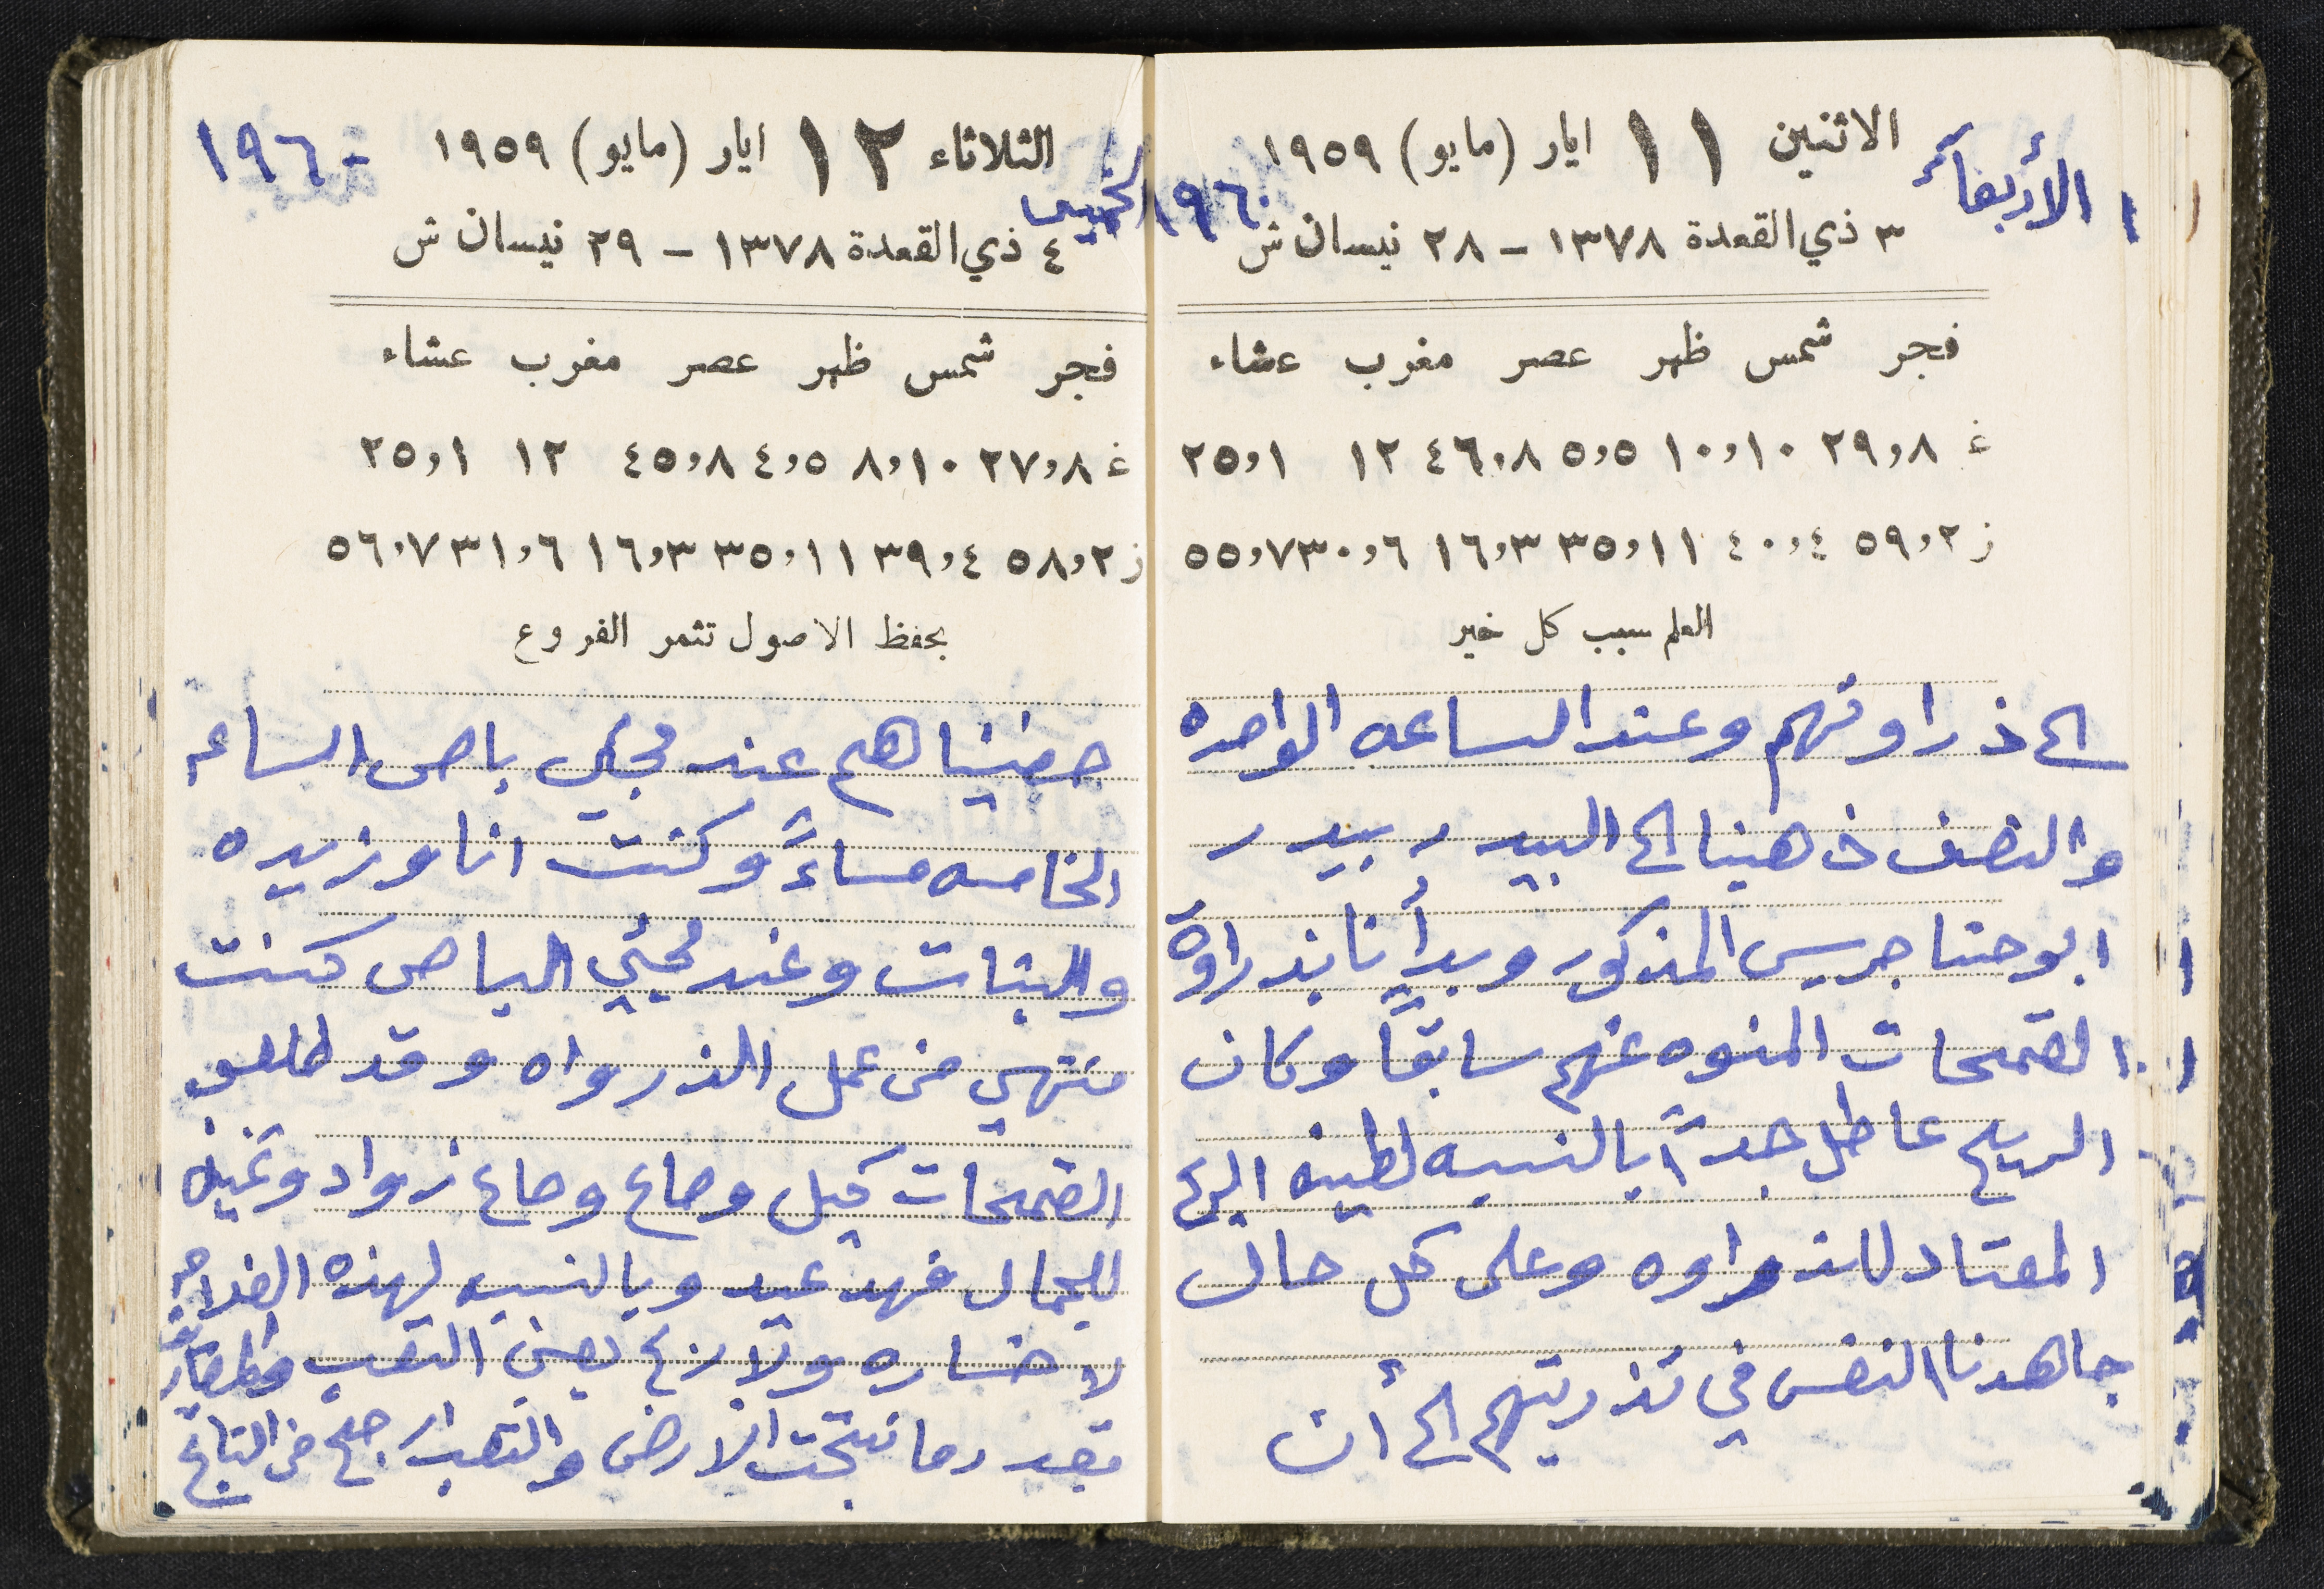 الأربعاء
الاثنين ١١ ايار (مايو) ١٩٥٩
١٩٦٠
٣ ذي القعدة ١٣٧٨ – ٢٨ نيسان ش
فجر شمس ظهر عصر مغرب عشاء
غ ٢٩,٨ ١٠,١٠ ٥,٥ ٤٦,٨ ١٢ ٢٥,١
ز ٥٩,٢ ٤٠,٤ ٣٥,١١ ١٦,٣ ٣٠,٦ ٥٥,٧
العلم سبب كل خير
الى ذراوتهم وعند الساعه الواحده
والنصف ذهبنا الى البيدر بيدر
ابو حنا جريس المذكور وبدأنا بذراوة
القمحات المنوه عنهم سابقاً وكان
الريح عاطل جداً بالنسبه لطينه الريح
المعتاد للذراوه وعلى كل حال
جاهدنا النفس في تذريتهم الى أن
الخميس
الثلاثاء ١٢ ايار (مايو) ١٩٥٩
١٩٦٠
٤ ذي القعدة ١٣٧٨ – ٢٩ نيسان ش
فجر شمس ظهر عصر مغرب عشاء
غ ٢٧,٨ ٨,١٠ ٤,٥ ٤٥,٨ ١٢ ٢٥,١
ز ٥٨,٢ ٣٩,٤ ٣٥,١١ ١٦,٣ ٣١,٦ ٥٦,٧
بحفظ الاصول تثمر الفروع
صفيناهم عند مجيئ باص الساعه
الخامسه مساءً وكنت انا وزيده
والبنات وعند مجيئي الباص كنت
منتهي من عمل الذرواه وقد طلعو
القمحات كيل وصاع وصاع زواد وثمنيه
للجمال فهد عيد وبالنسبه لهذه الفلاحه
لا خساره ولا ربح يعني التعب والمصاريف
بقدر ما نتجت الارض والتعب ارجح من الناتج